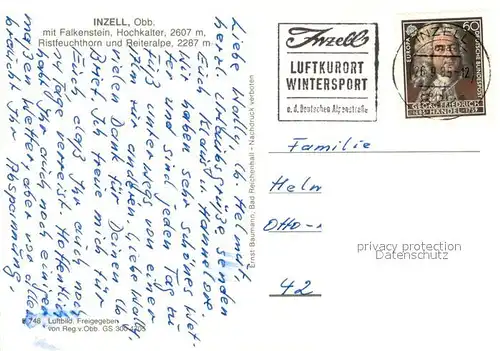 INZELL, Obb.
mit Falkenstein, Hochkalter, 2607 m,
Ristfeuchthorn und Reiteralpe, 2287 m
Inzell
LUFTKURORT
WINTERSPORT
a. d. Deutschen Alpenstraße
INZELL
26.9.85-12
EUROPA
60
DEUTSCHE BUNDESPOST
GEORG FRIEDRICH
1685 HÄNDEL 1759
Liebe Wally, lb. Helmut!
herzl. Urlaubsgrüße senden
Euch Klaus u. Hannelore.
Wir haben sehr schönes Wet-
ter und sind jeden Tag zu
Fuß unterwegs von einer
Alm zur andern. Liebe Wally,
vielen Dank für Deinen lb.
Brief. Ich freue mich für
Euch, daß Ihr auch noch
14 Tage verreist. Hoffentlich
habt Ihr auch noch einiger-
maßen Wetter, aber vor allem
braucht Ihr Abspannung.
Ernst Baumann, Bad Reichenhall - Nachdruck verboten
748 Luftbild. Freigegeben
von Reg. v. Obb. GS 300
Familie
Helm
Otto-
42
privacy protection
Datenschutz